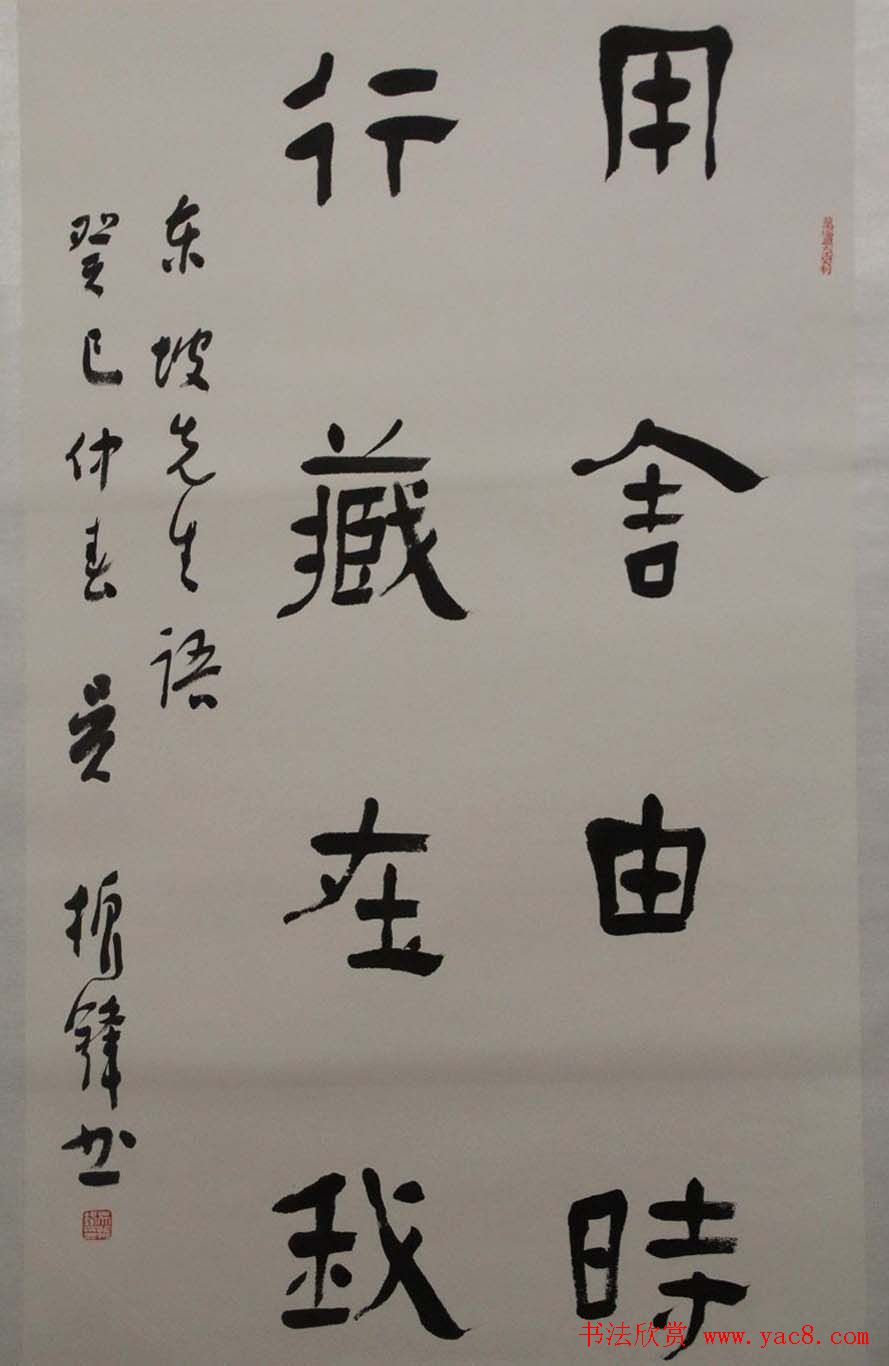 用舍由時
行藏在我
东坡先生语
癸巳仲春 吴振鋒书
书法欣赏 www.yac8.com